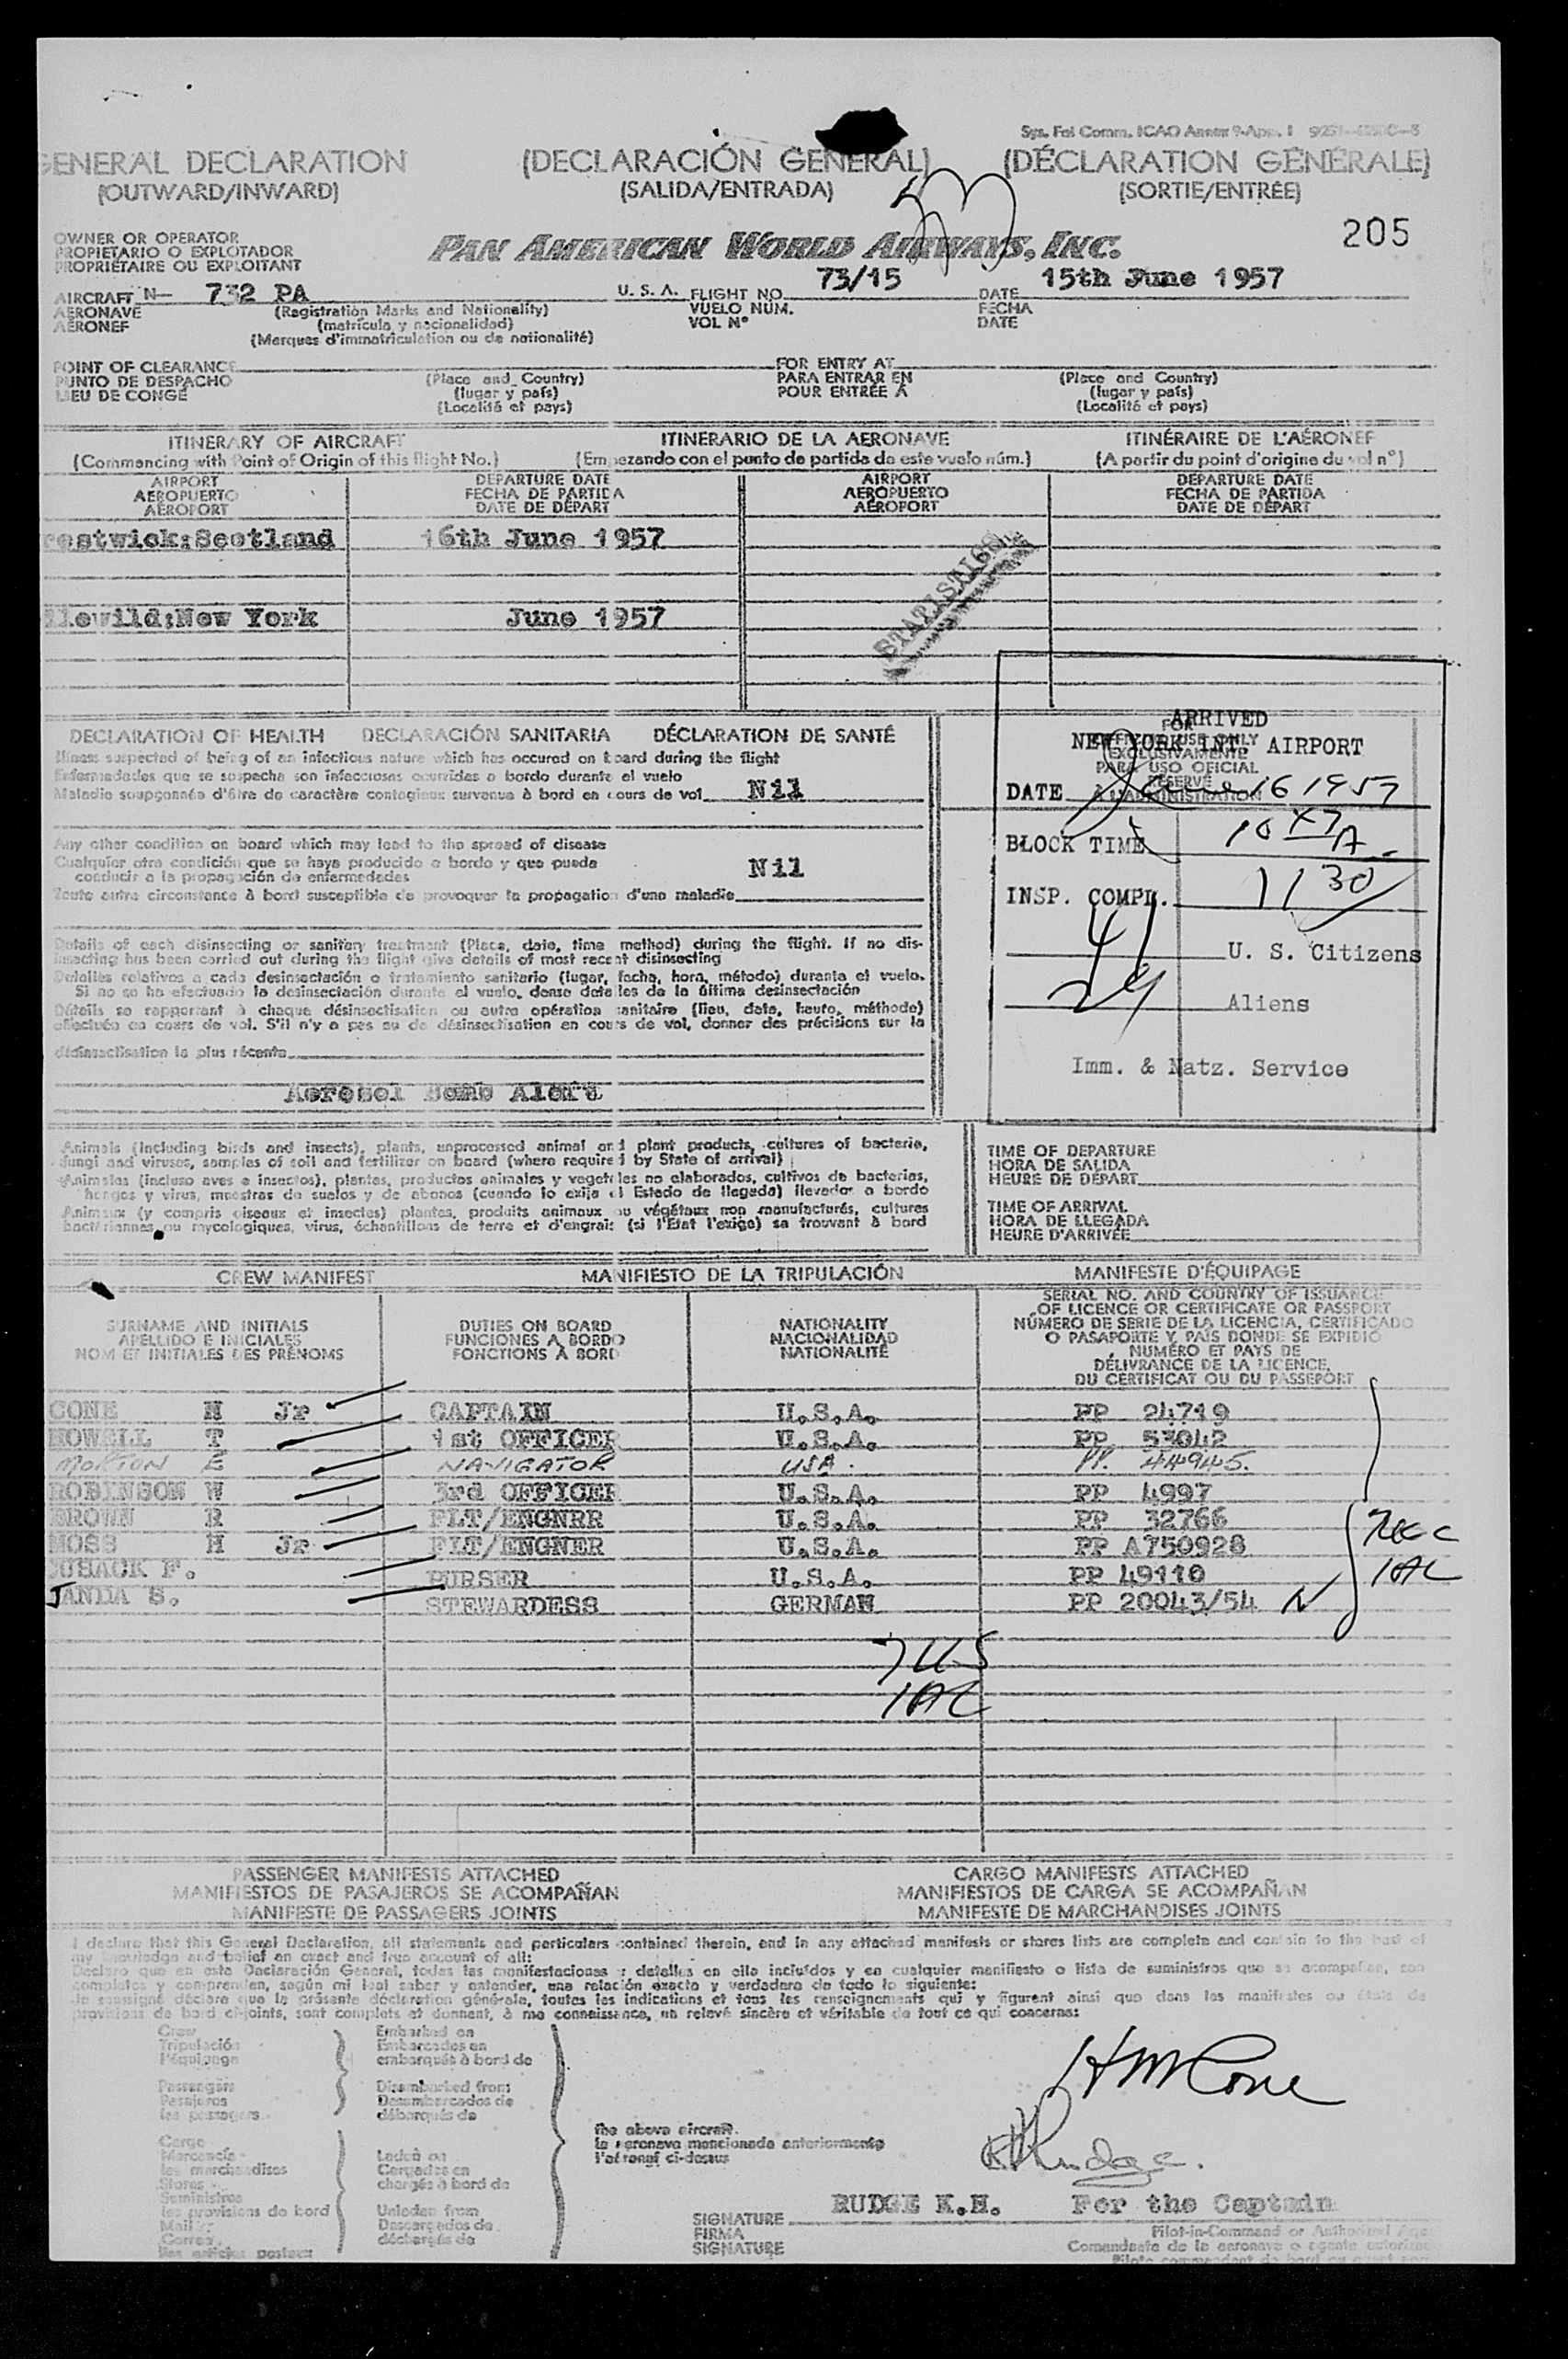 Sys. Fol Comm. ICAO Annex 9-App. 1
GENERAL DECLARATION (DECLARACIÓN GENERAL) (DÉCLARATION GÉNÉRALE)
(OUTWARD/INWARD) (SALIDA/ENTRADA) (SORTIE/ENTRÉE)
205
OWNER OR OPERATOR
PROPIETARIO O EXPLOTADOR
PROPRIÉTAIRE OU EXPLOITANT
PAN AMERICAN WORLD AIRWAYS, INC.
AIRCRAFT N- 732 PA U. S. A. FLIGHT NO. 73/15 DATE 15th June 1957
AERONAVE (Registration Marks and Nationality) VUELO NÚM. FECHA
AÉRONEF (matrícula y nacionalidad) VOL Nº DATE
(Marques d'immatriculation ou de nationalité)
POINT OF CLEARANCE FOR ENTRY AT
PUNTO DE DESPACHO (Place and Country) PARA ENTRAR EN (Place and Country)
LIEU DE CONGÉ (lugar y país) POUR ENTRÉE A (lugar y país)
(Localité et pays) (Localité et pays)
ITINERARY OF AIRCRAFT ITINERARIO DE LA AERONAVE ITINÉRAIRE DE L'AÉRONEF
(Commencing with Point of Origin of this flight No.) (Empezando con el punto de partida de este vuelo núm.) (A partir du point d'origine du vol n°)
AIRPORT DEPARTURE DATE AIRPORT DEPARTURE DATE
AEROPUERTO FECHA DE PARTIDA AEROPUERTO FECHA DE PARTIDA
AÉROPORT DATE DE DÉPART AÉROPORT DATE DE DÉPART
restwick:Scotland 16th June 1957
lewild:New York June 1957
DECLARATION OF HEALTH DECLARACIÓN SANITARIA DÉCLARATION DE SANTÉ
Illness suspected of being of an infectious nature which has occured on board during the flight
Enfermedades que se sospecha son infecciosas ocurridas a bordo durante el vuelo
Maladie soupçonnée d'être de caractère contagieux survenue à bord en cours de vol Nil
Any other condition on board which may lead to the spread of disease
Cualquier otra condición que se haya producido a bordo y que pueda
conducir a la propagación de enfermedades Nil
Toute autre circonstance à bord susceptible de provoquer la propagation d'une maladie
Details of each disinsecting or sanitary treatment (Place, date, time method) during the flight. If no dis-
insecting has been carried out during the flight give details of most recent disinsecting
Detalles relativos a cada desinsectación o tratamiento sanitario (lugar, fecha, hora, método) durante el vuelo.
Si no se ha efectuado la desinsectación durante el vuelo, dense detalles de la última desinsectación
Détails se rapportant à chaque désinsectisation ou autre opération sanitaire (lieu, date, heure, méthode)
effectuée en cours de vol. S'il n'y a pas eu de désinsectisation en cours de vol, donner des précisions sur la
désinsectisation la plus récente
Aerosol Bomb
FOR
OFFICIAL USE ONLY
EXCLUSIVAMENTE
PARA USO OFICIAL
RÉSERVÉ
À L'ADMINISTRATION
ARRIVED
NEW YORK INT. AIRPORT
DATE June 16 1957
BLOCK TIME
INSP. COMPL. 1130
41 U. S. Citizens
24 Aliens
Imm. & Natz. Service
Animals (including birds and insects), plants, unprocessed animal and plant products, cultures of bacteria,
fungi and viruses, samples of soil and fertilizer on board (where required by State of arrival)
Animales (incluso aves e insectos), plantas, productos animales y vegetales no elaborados, cultivos de bacterias,
hongos y virus, muestras de suelos y de abonos (cuando lo exija el Estado de llegada) llevados a bordo
Animaux (y compris oiseaux et insectes) plantes, produits animaux ou végétaux non manufacturés, cultures
bactériennes ou mycologiques, virus, échantillons de terre et d'engrais (si l'Etat l'exige) se trouvant à bord
TIME OF DEPARTURE
HORA DE SALIDA
HEURE DE DÉPART
TIME OF ARRIVAL
HORA DE LLEGADA
HEURE D'ARRIVÉE
CREW MANIFEST MANIFIESTO DE LA TRIPULACIÓN MANIFESTE D'ÉQUIPAGE
SURNAME AND INITIALS
APELLIDO E INICIALES
NOM ET INITIALES DES PRÉNOMS
DUTIES ON BOARD
FUNCIONES A BORDO
FONCTIONS À BORD
NATIONALITY
NACIONALIDAD
NATIONALITÉ
SERIAL NO. AND COUNTRY OF ISSUANCE
OF LICENCE OR CERTIFICATE OR PASSPORT
NÚMERO DE SERIE DE LA LICENCIA, CERTIFICADO
O PASAPORTE Y PAÍS DONDE SE EXPIDIÓ
NUMÉRO ET PAYS DE
DÉLIVRANCE DE LA LICENCE,
DU CERTIFICAT OU DU PASSEPORT
CONE H Jr CAPTAIN U.S.A. PP 24719
HOWELL T 1st OFFICER U.S.A. PP 53042
MORTON E NAVIGATOR USA. PP. 44945.
ROBINSON W 3rd OFFICER U.S.A. PP 4997
BROWN R FLT/ENGNRR U.S.A. PP 32766
MOSS H Jr FLT/ENGNER U.S.A. PP A750928
CUSACK F. PURSER U.S.A. PP 49110
JANDA S. STEWARDESS GERMAN PP 20043/54 N
7 US
1 AL
PASSENGER MANIFESTS ATTACHED CARGO MANIFESTS ATTACHED
MANIFIESTOS DE PASAJEROS SE ACOMPAÑAN MANIFIESTOS DE CARGA SE ACOMPAÑAN
MANIFESTE DE PASSAGERS JOINTS MANIFESTE DE MARCHANDISES JOINTS
I declare that this General Declaration, all statements and particulars contained therein, and in any attached manifests or stores lists are complete and contain to the best of
my knowledge and belief an exact and true account of all:
Declaro que en esta Declaración General, todas las manifestaciones y detalles en ella incluídos y en cualquier manifiesto o lista de suministros que se acompañan, son
completos y comprenden, según mi leal saber y entender, una relación exacta y verdadera de todo lo siguiente:
Je soussigné déclare que la présente déclaration générale, toutes les indications et tous les renseignements qui y figurent ainsi que dans les manifestes ou états de
provisions de bord ci-joints, sont complets et donnent, à ma connaissance, un relevé sincère et véritable de tout ce qui concerne:
Crew Embarked on
Tripulación Embarcados en
l'équipage embarqués à bord de
Passengers Disembarked from
Pasajeros Desembarcados de
les passagers débarqués de
the above aircraft.
la aeronave mencionada anteriormente
l'aéronef ci-dessus
Cargo
Mercancía Laded on
les marchandises Cargados en
Stores chargés à bord de
Suministros
les provisions de bord Unladen from
Mail Descargados de
Correo déchargés de
les articles postaux
H M Cone
K H Rudge.
SIGNATURE RUDGE K.H. For the Captain
FIRMA
SIGNATURE
Pilot-in-Command or Authorized
Comandante de la aeronave o agente